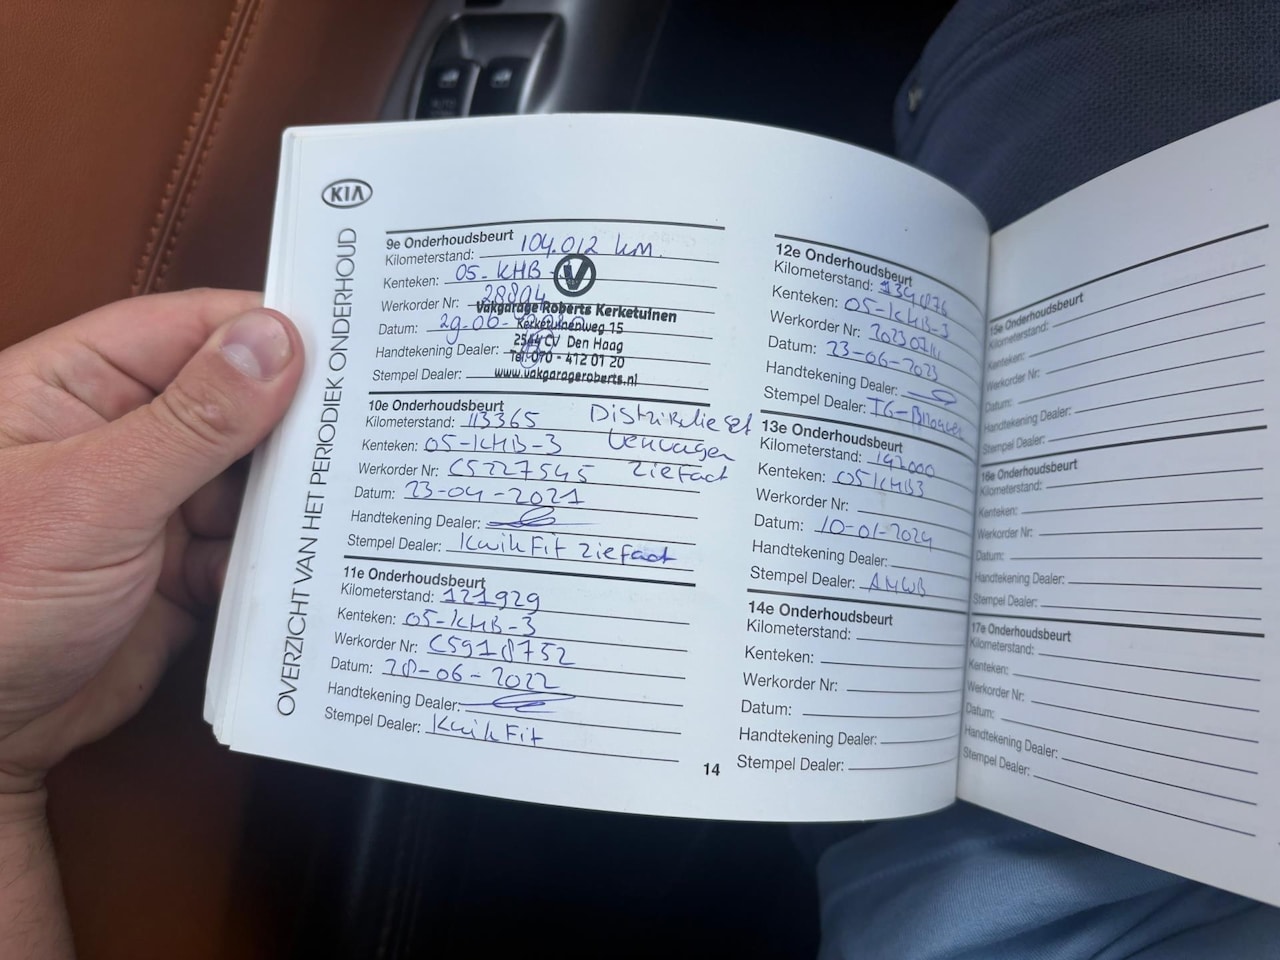 KIA
OVERZICHT VAN HET PERIODIEK ONDERHOUD
9e Onderhoudsbeurt
Kilometerstand: 104.012 km.
Kenteken: 05-KHB
Werkorder Nr: 28804
Datum: 29-06-
Handtekening Dealer:
Stempel Dealer:
Vakgarage Roberts Kerketuinen
Kerketuinenweg 15
2544 CV Den Haag
Tel. 070 - 412 01 20
www.vakgarageroberts.nl
10e Onderhoudsbeurt
Kilometerstand: 113365
Kenteken: 05-KHB-3
Werkorder Nr: C5227545
Datum: 23-04-2021
Handtekening Dealer:
Stempel Dealer: KwikFit Ziefact
Distributie set
Vervangen
Ziefact
11e Onderhoudsbeurt
Kilometerstand: 121929
Kenteken: 05-KHB-3
Werkorder Nr: C5918752
Datum: 28-06-2022
Handtekening Dealer:
Stempel Dealer: KwikFit
14
12e Onderhoudsbeurt
Kilometerstand: 134876
Kenteken: 05-KHB-3
Werkorder Nr:
Datum: 23-06-2023
Handtekening Dealer:
Stempel Dealer:
13e Onderhoudsbeurt
Kilometerstand: 142000
Kenteken: 05KHB3
Werkorder Nr:
Datum: 10-01-2024
Handtekening Dealer:
Stempel Dealer: ANWB
14e Onderhoudsbeurt
Kilometerstand:
Kenteken:
Werkorder Nr:
Datum:
Handtekening Dealer:
Stempel Dealer:
15e Onderhoudsbeurt
Kilometerstand:
Kenteken:
Werkorder Nr:
Datum:
Handtekening Dealer:
Stempel Dealer:
16e Onderhoudsbeurt
Kilometerstand:
Kenteken:
Werkorder Nr:
Datum:
Handtekening Dealer:
Stempel Dealer:
17e Onderhoudsbeurt
Kilometerstand:
Kenteken:
Werkorder Nr:
Datum:
Handtekening Dealer:
Stempel Dealer: